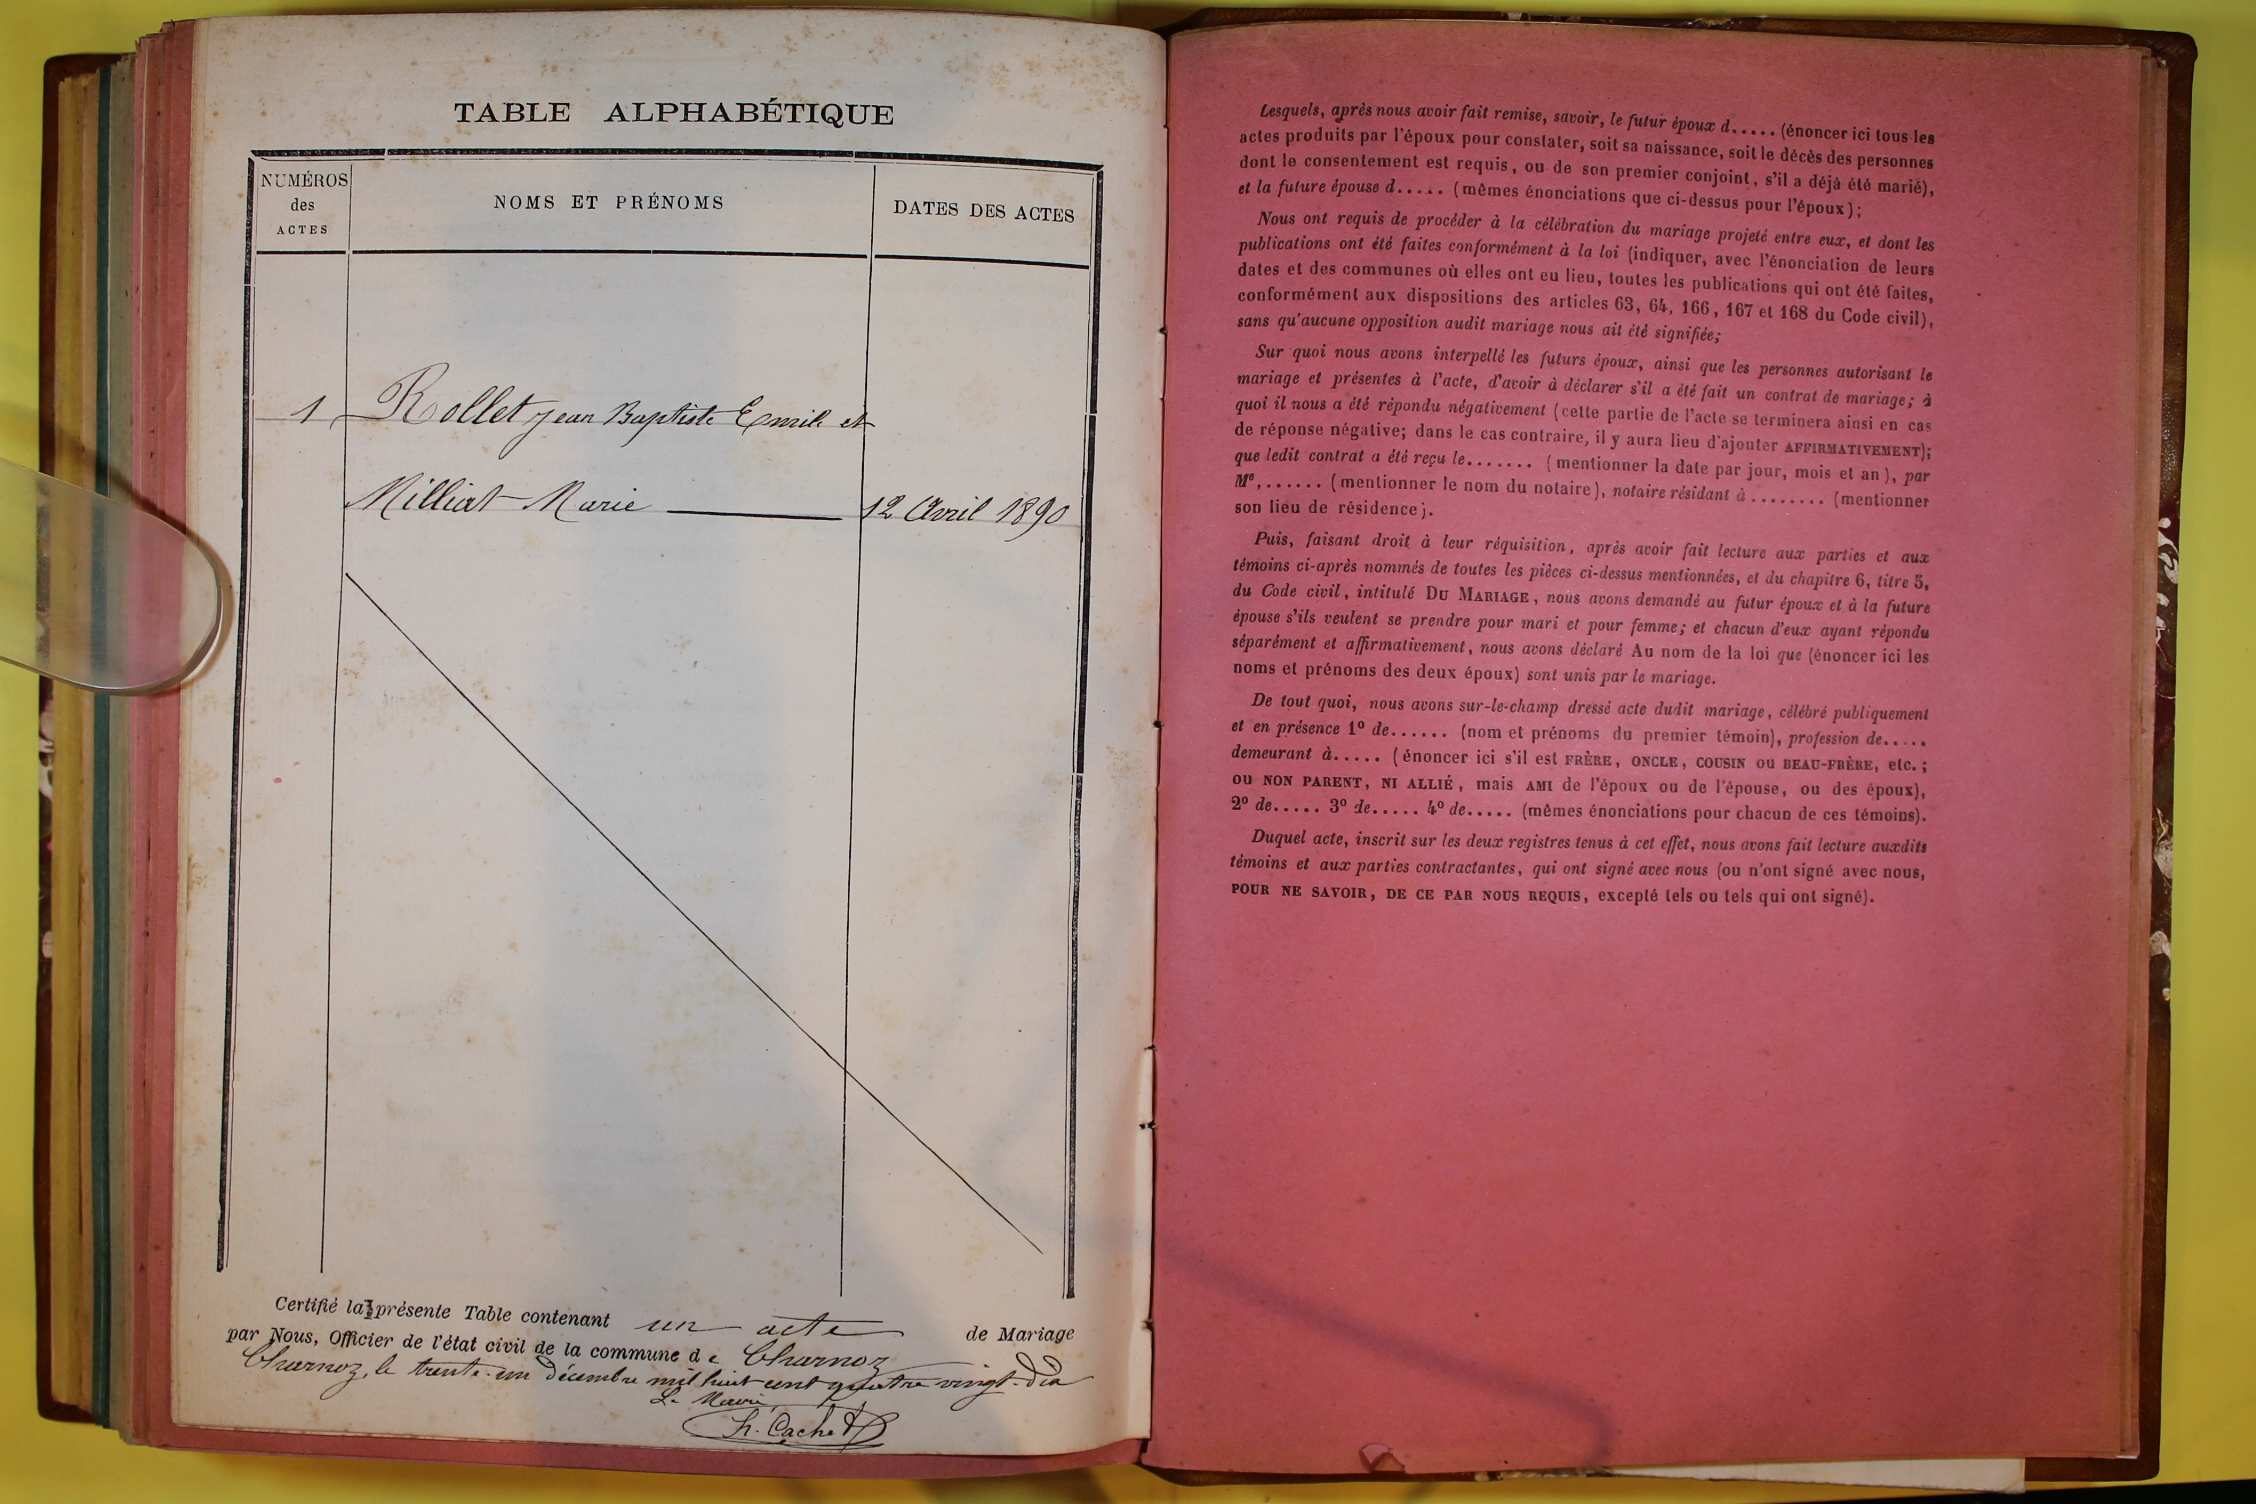 TABLE ALPHABÉTIQUE
NUMÉROS
des
ACTES
NOMS ET PRÉNOMS
DATES DES ACTES
1 Rollet Jean Baptiste Emile et
Milliat Marie 12 Avril 1890
Certifié la présente Table contenant un acte de Mariage
par Nous, Officier de l'état civil de la commune de Charnoz
Charnoz, le trente-un décembre mil huit cent quatre vingt-dix
Le Maire,
Cachet
Lesquels, après nous avoir fait remise, savoir, le futur époux d..... (énoncer ici tous les
actes produits par l'époux pour constater, soit sa naissance, soit le décès des personnes
dont le consentement est requis, ou de son premier conjoint, s'il a déjà été marié),
et la future épouse d..... (mêmes énonciations que ci-dessus pour l'époux);
Nous ont requis de procéder à la célébration du mariage projeté entre eux, et dont les
publications ont été faites conformément à la loi (indiquer, avec l'énonciation de leurs
dates et des communes où elles ont eu lieu, toutes les publications qui ont été faites,
conformément aux dispositions des articles 63, 64, 166, 167 et 168 du Code civil),
sans qu'aucune opposition audit mariage nous ait été signifiée;
Sur quoi nous avons interpellé les futurs époux, ainsi que les personnes autorisant le
mariage et présentes à l'acte, d'avoir à déclarer s'il a été fait un contrat de mariage; à
quoi il nous a été répondu négativement (cette partie de l'acte se terminera ainsi en cas
de réponse négative; dans le cas contraire, il y aura lieu d'ajouter AFFIRMATIVEMENT);
que ledit contrat a été reçu le....... (mentionner la date par jour, mois et an), par
Me,...... (mentionner le nom du notaire), notaire résidant à ........ (mentionner
son lieu de résidence).
Puis, faisant droit à leur réquisition, après avoir fait lecture aux parties et aux
témoins ci-après nommés de toutes les pièces ci-dessus mentionnées, et du chapitre 6, titre 5,
du Code civil, intitulé DU MARIAGE, nous avons demandé au futur époux et à la future
épouse s'ils veulent se prendre pour mari et pour femme; et chacun d'eux ayant répondu
séparément et affirmativement, nous avons déclaré Au nom de la loi que (énoncer ici les
noms et prénoms des deux époux) sont unis par le mariage.
De tout quoi, nous avons sur-le-champ dressé acte dudit mariage, célébré publiquement
et en présence 1º de...... (nom et prénoms du premier témoin), profession de.....
demeurant à..... (énoncer ici s'il est FRÈRE, ONCLE, COUSIN ou BEAU-FRÈRE, etc.;
ou NON PARENT, NI ALLIÉ, mais AMI de l'époux ou de l'épouse, ou des époux),
2º de..... 3º de..... 4º de..... (mêmes énonciations pour chacun de ces témoins).
Duquel acte, inscrit sur les deux registres tenus à cet effet, nous avons fait lecture auxdits
témoins et aux parties contractantes, qui ont signé avec nous (ou n'ont signé avec nous,
POUR NE SAVOIR, DE CE PAR NOUS REQUIS, excepté tels ou tels qui ont signé).